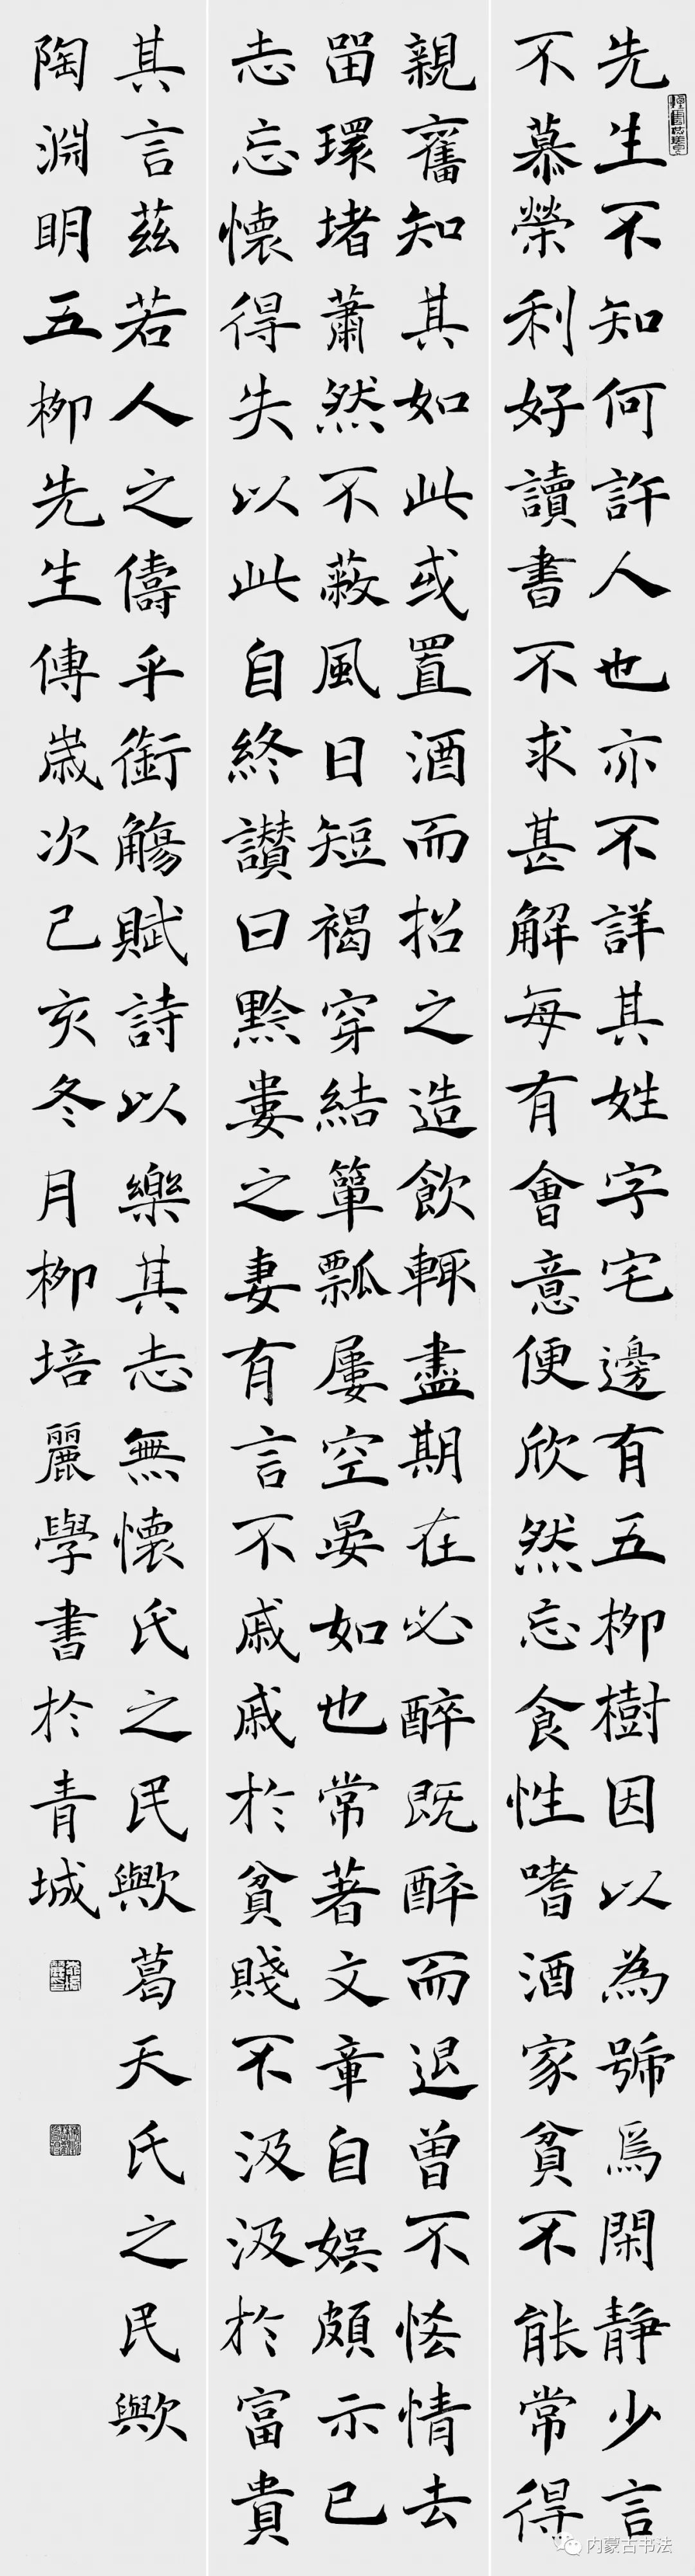 先生不知何許人也亦不詳其姓字宅邊有五柳樹因以為號焉閑静少言
不慕榮利好讀書不求甚解每有會意便欣然忘食性嗜酒家貧不能常得
親舊知其如此或置酒而招之造飲輒盡期在必醉既醉而退曾不恡情去
留環堵蕭然不蔽風日短褐穿結簞瓢屢空晏如也常著文章自娱頗示己
志忘懷得失以此自終讃曰黔婁之妻有言不戚戚於貧賤不汲汲於富貴
其言茲若人之儔乎銜觴賦詩以樂其志無懷氏之民歟葛天氏之民歟
陶淵明五柳先生傳歲次己亥冬月柳培麗學書於青城
内蒙古书法